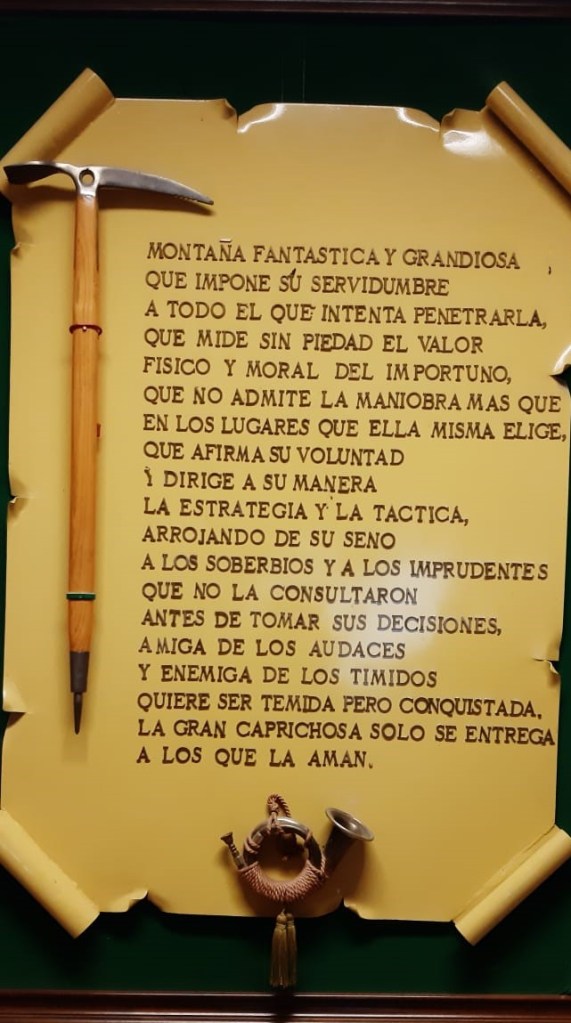 MONTAÑA FANTASTICA Y GRANDIOSA,
QUE IMPONE SU SERVIDUMBRE
A TODO EL QUE INTENTA PENETRARLA,
QUE MIDE SIN PIEDAD EL VALOR
FISICO Y MORAL DEL IMPORTUNO,
QUE NO ADMITE LA MANIOBRA MAS QUE
EN LOS LUGARES QUE ELLA MISMA ELIGE,
QUE AFIRMA SU VOLUNTAD
Y DIRIGE A SU MANERA
LA ESTRATEGIA Y LA TACTICA,
ARROJANDO DE SU SENO
A LOS SOBERBIOS Y A LOS IMPRUDENTES
QUE NO LA CONSULTARON
ANTES DE TOMAR SUS DECISIONES,
AMIGA DE LOS AUDACES
Y ENEMIGA DE LOS TIMIDOS
QUIERE SER TEMIDA PERO CONQUISTADA.
LA GRAN CAPRICHOSA SOLO SE ENTREGA
A LOS QUE LA AMAN.